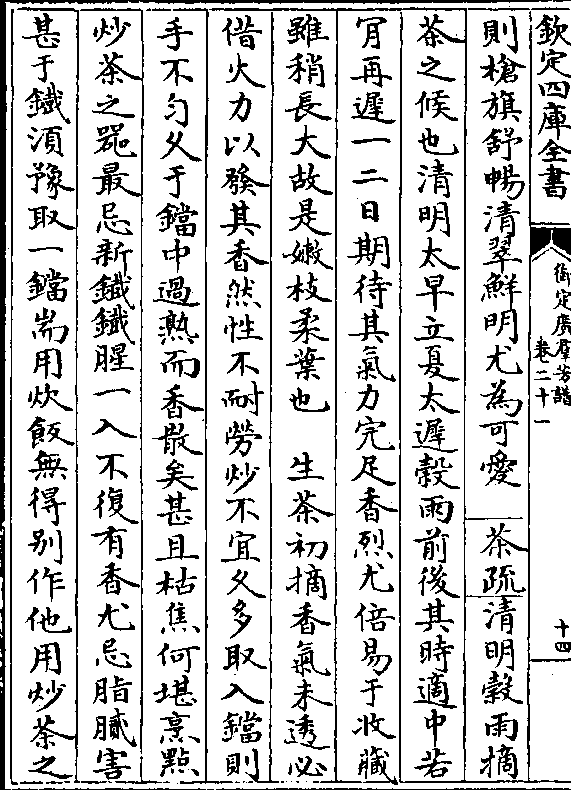 欽定四庫全書
御定廣群芳譜
卷二十一
十四
則槍旗舒暢清翠鮮明尤為可愛 茶疏清明穀雨摘
茶之候也清明太早立夏太遲穀雨前後其時適中若
肎再遲一二日期待其氣力完足香烈尤倍易于收藏
雖稍長大故是嫩枝柔葉也 生茶初摘香氣未透必
借火力以發其香然性不耐勞炒不宜久多取入鐺則
手不勻久于鐺中過熟而香散矣甚且枯焦何堪烹㸃
炒茶之器最忌新鐵鐵腥一入不復有香尤忌脂膩害
甚于鐵須豫取一鐺耑用炊飯無得别作他用炒茶之